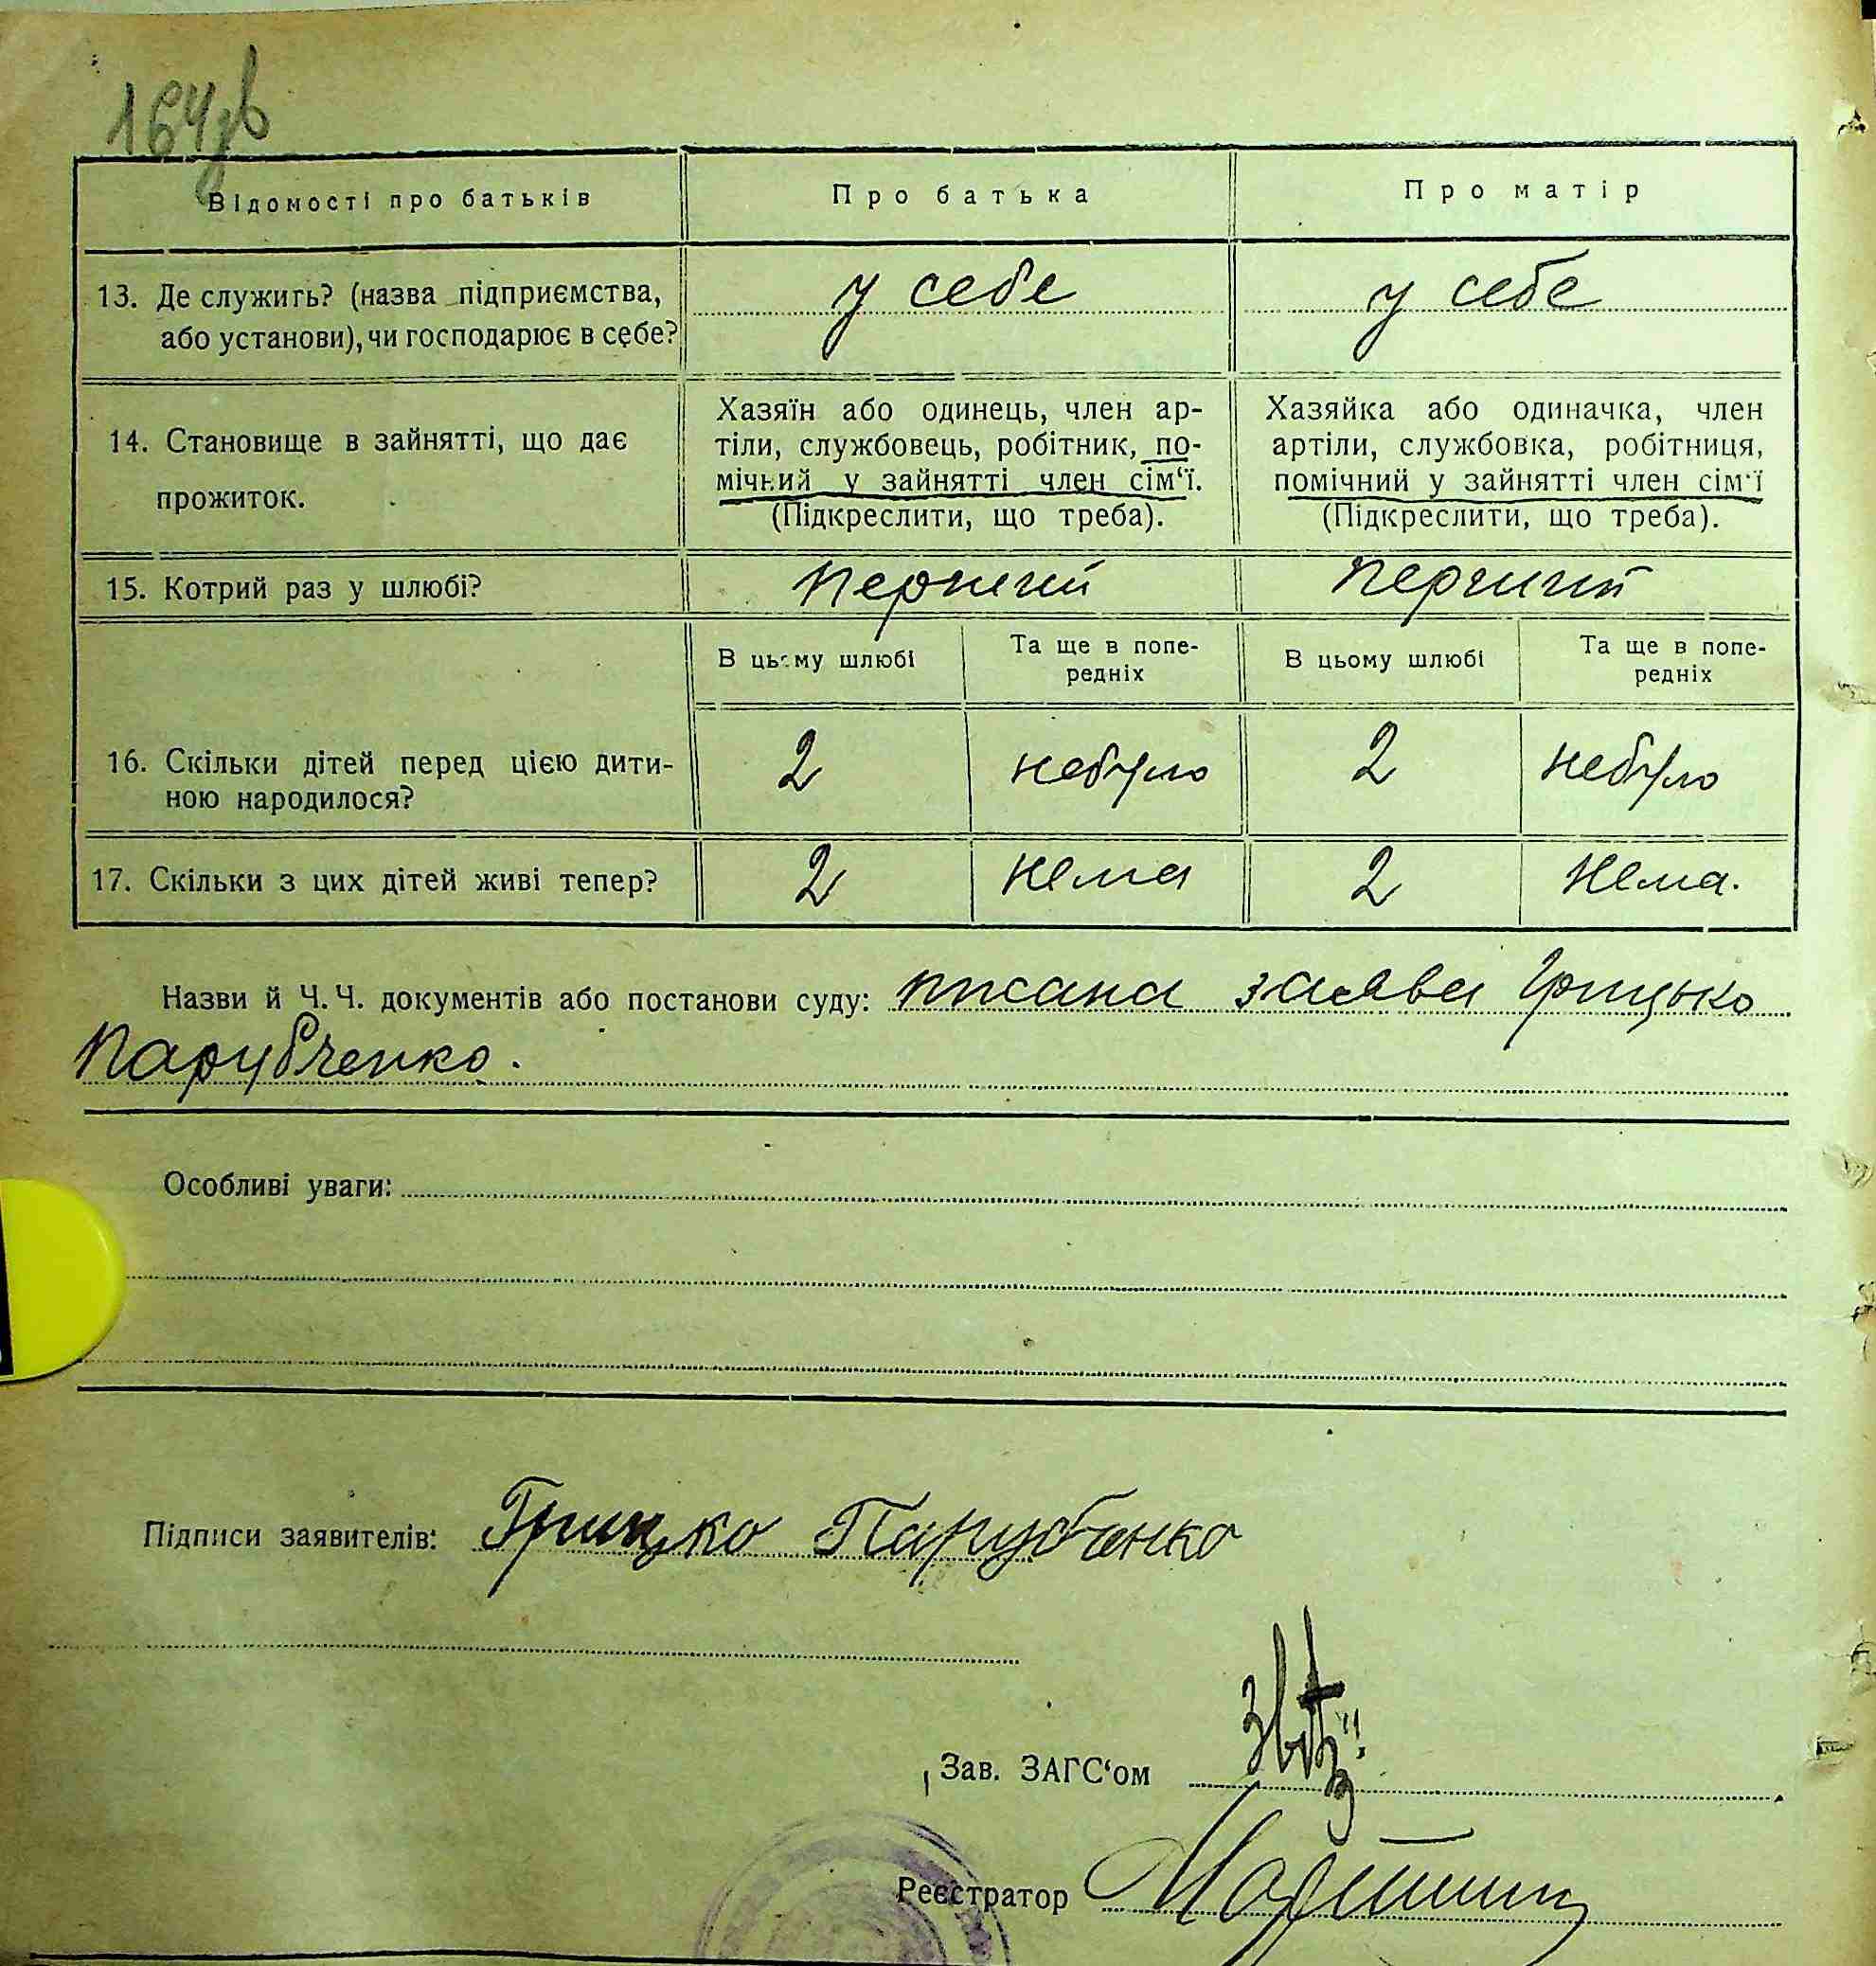 164зв
Відомості про батьків
Про батька
Про матір
13. Де служить? (назва підприємства,
або установи), чи господарює в себе?
у себе
у себе
14. Становище в зайнятті, що дає
прожиток.
Хазяїн або одинець, член ар-
тіли, службовець, робітник, по-
мічний у зайнятті член сім‘ї.
(Підкреслити, що треба).
Хазяйка або одиначка, член
артіли, службовка, робітниця,
помічний у зайнятті член сім‘ї
(Підкреслити, що треба).
15. Котрий раз у шлюбі?
перший
перший
В цьому шлюбі
Та ще в попе-
редніх
В цьому шлюбі
Та ще в попе-
редніх
16. Скільки дітей перед цією дити-
ною народилося?
2
небуло
2
небуло
17. Скільки з цих дітей живі тепер?
2
нема
2
нема.
Назви й Ч.Ч. документів або постанови суду: писана заява Грицько
Парубченко.
Особливі уваги:
Підписи заявителів: Грицко Парубченко
Зав. ЗАГС‘ом
Реєстратор